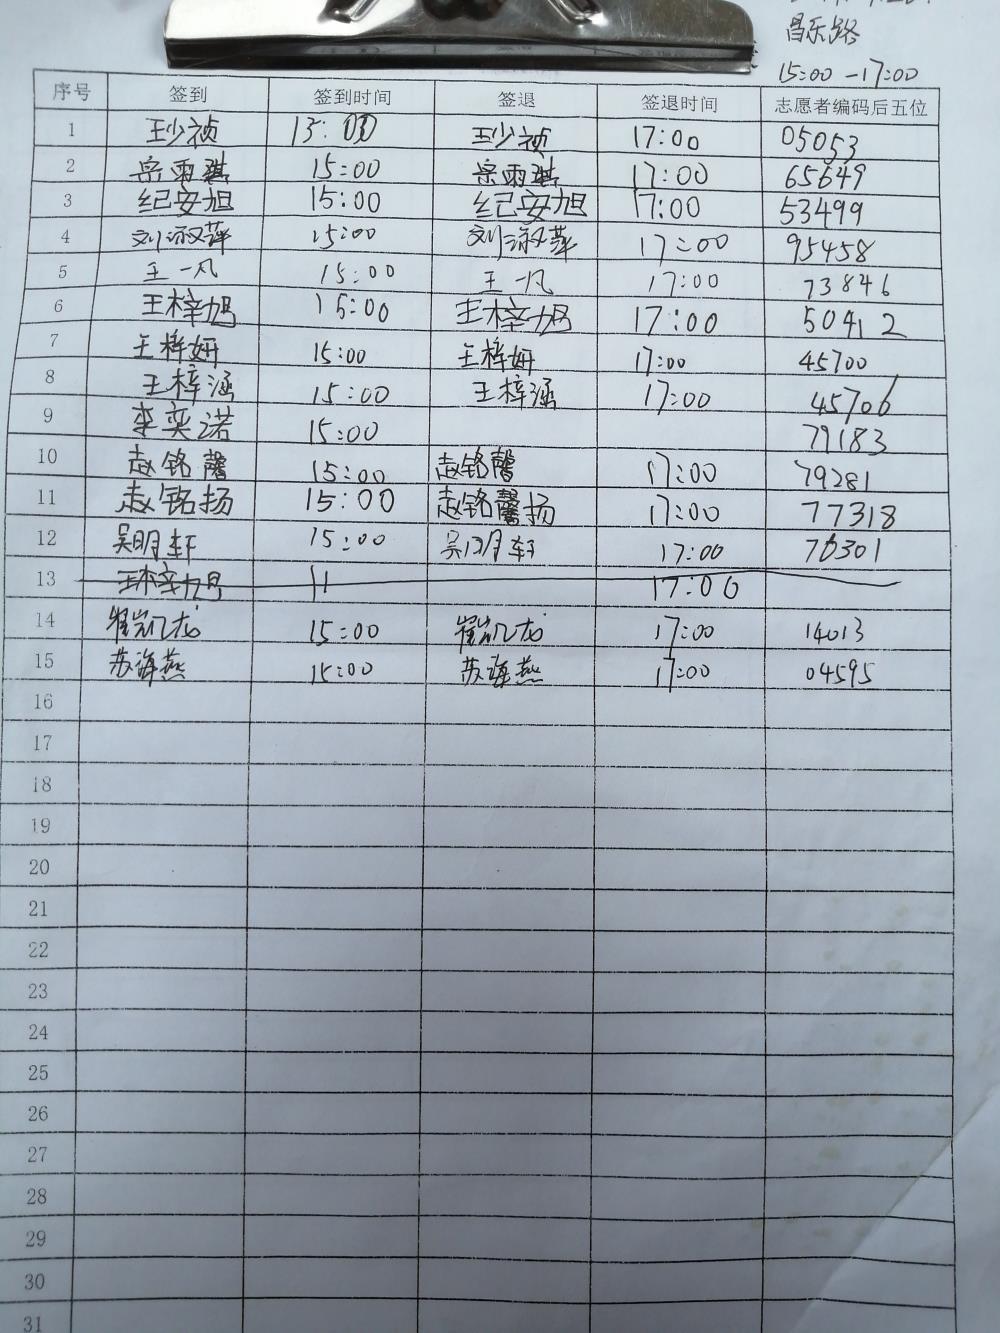 昌乐路
15:00-17:00
序号 签到 签到时间 签退 签退时间 志愿者编码后五位
1 王少祯 15:00 王少祯 17:00 05053
2 岳雨琪 15:00 岳雨琪 17:00 65649
3 纪安旭 15:00 纪安旭 17:00 53499
4 刘淑萍 15:00 刘淑萍 17:00 95458
5 王一凡 15:00 王一凡 17:00 73846
6 王梓旭 15:00 王梓旭 17:00 50412
7 王梓妍 15:00 王梓妍 17:00 45700
8 王梓涵 15:00 王梓涵 17:00 45706
9 李奕诺 15:00 79183
10 赵铭馨 15:00 赵铭馨 17:00 79281
11 赵铭扬 15:00 赵铭扬 17:00 77318
12 吴明轩 15:00 吴明轩 17:00 76301
13 王梓旭 17:00
14 崔凯龙 15:00 崔凯龙 17:00 14013
15 苏海燕 15:00 苏海燕 17:00 04595
16
17
18
19
20
21
22
23
24
25
26
27
28
29
30
31